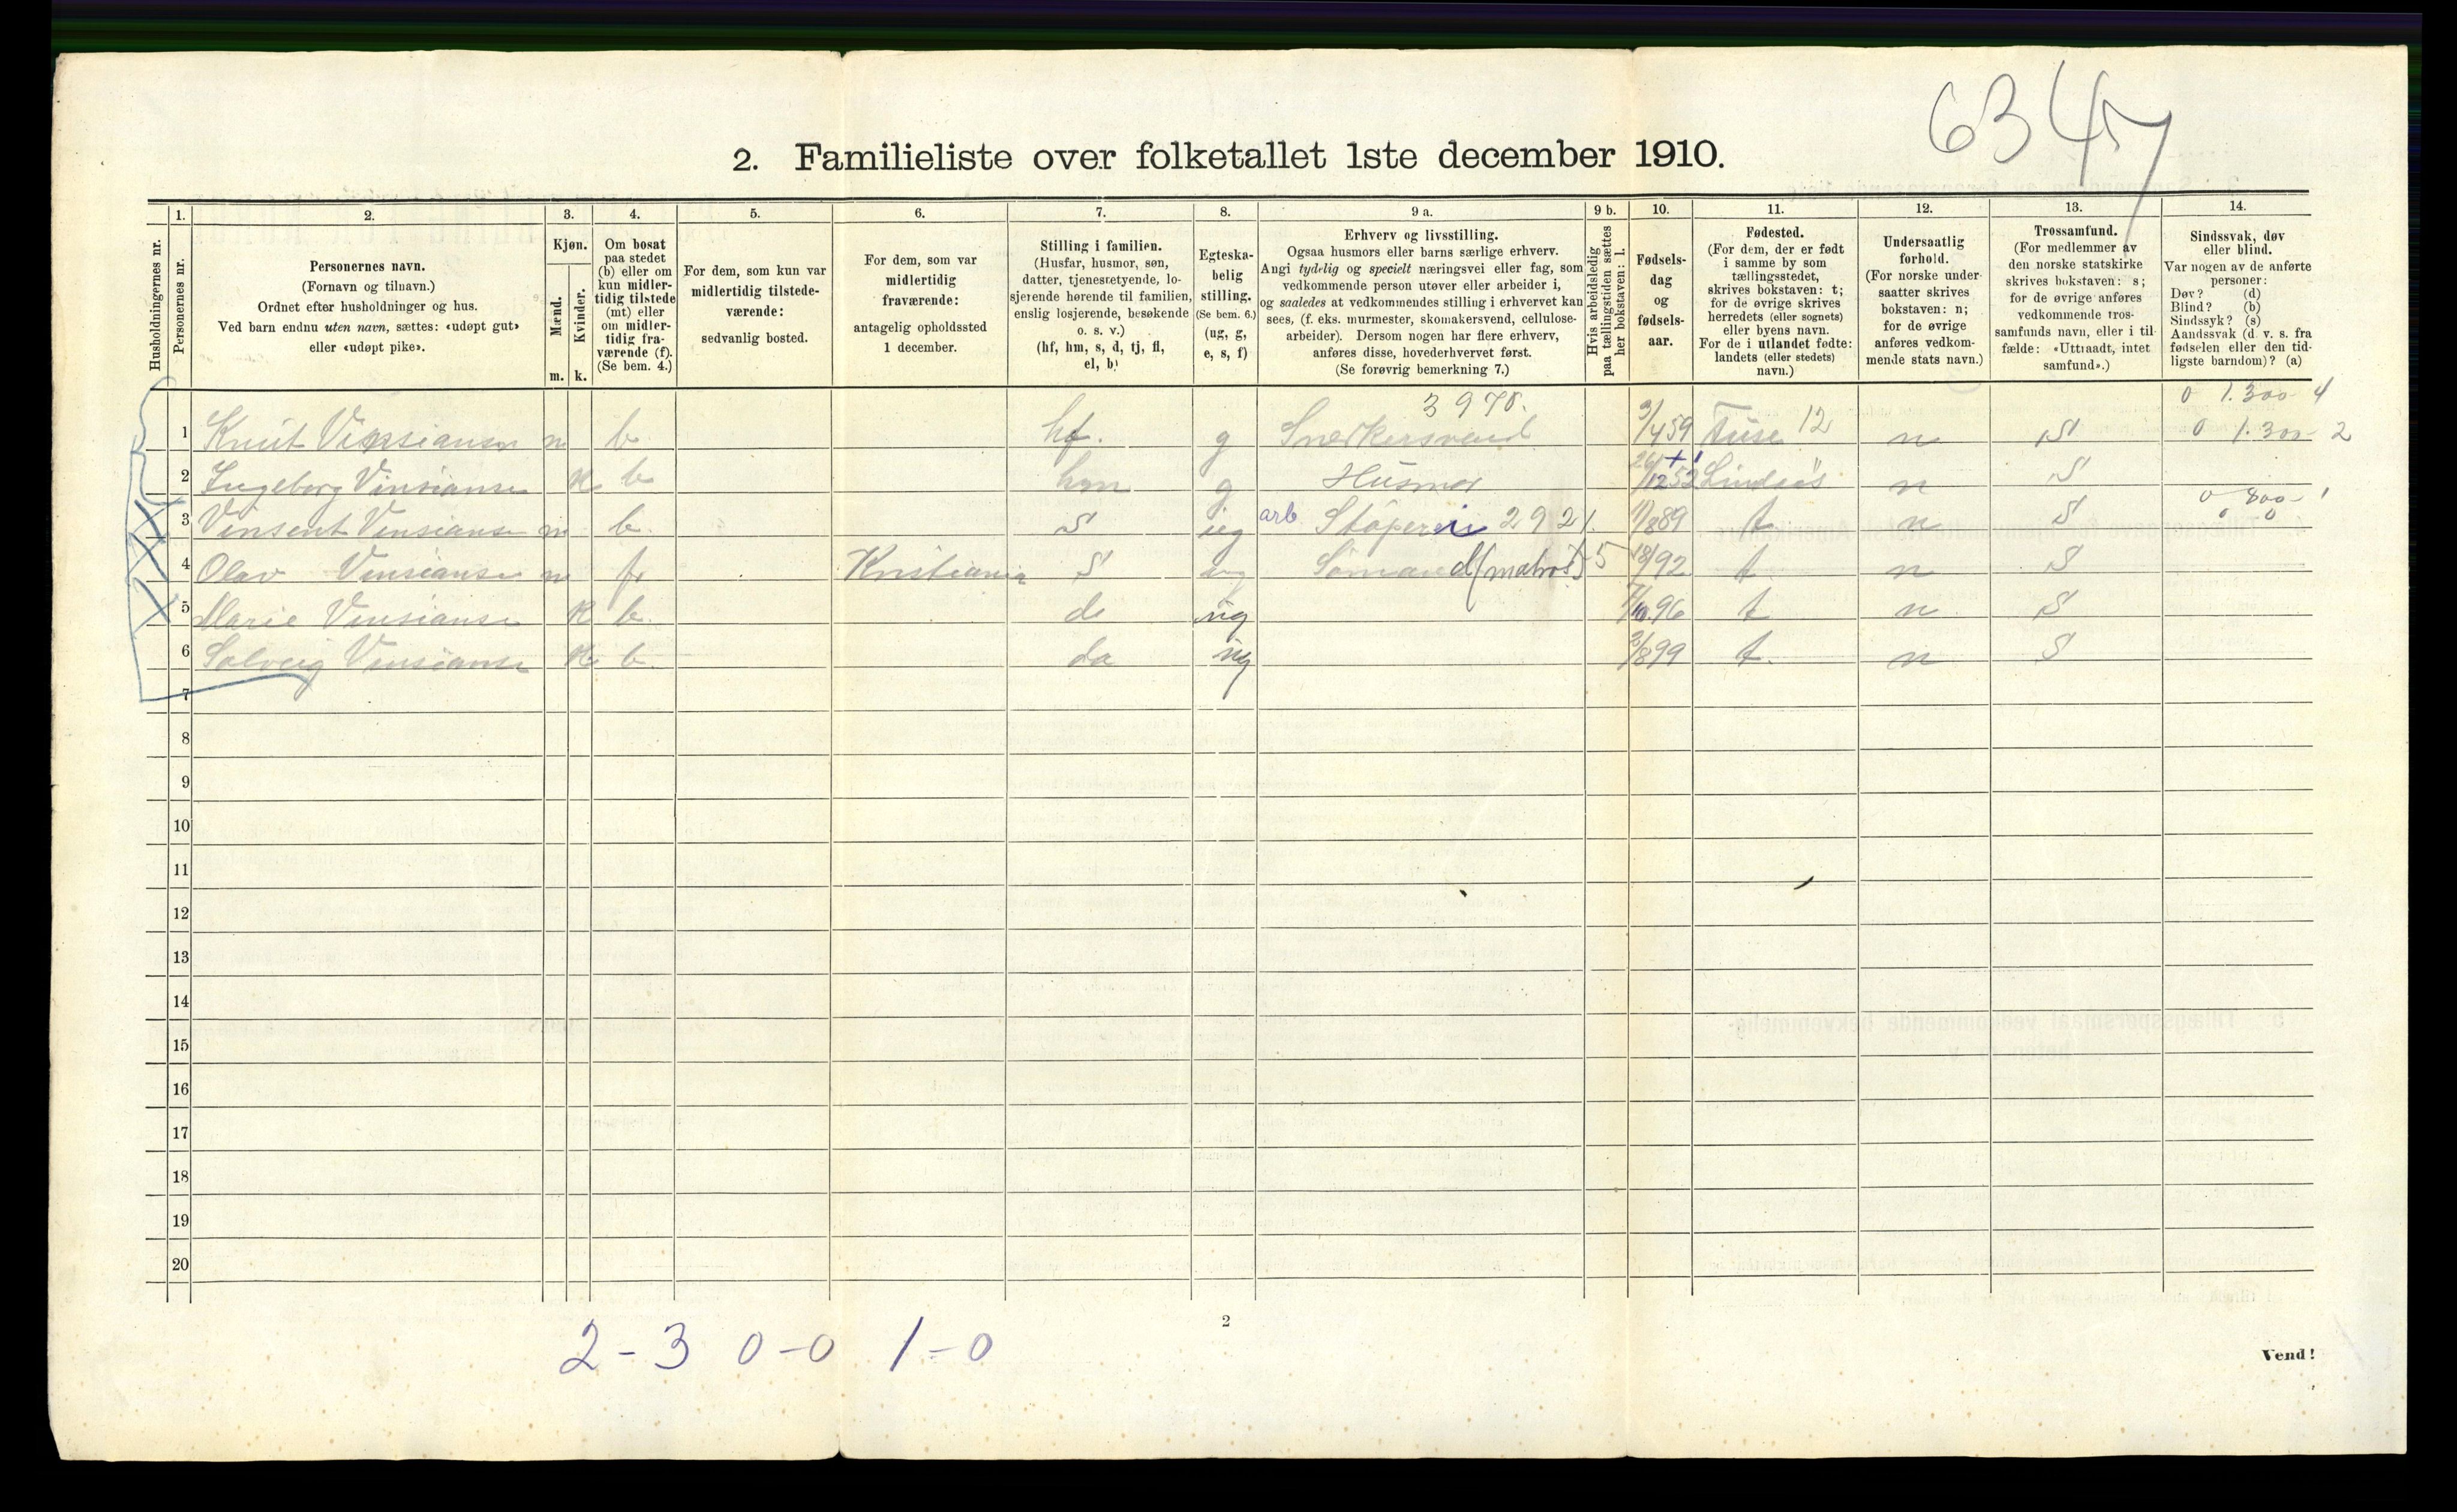 6347
2. Familieliste over folketallet 1ste december 1910.
Husholdningernes nr.
1. Personernes nr.
2. Personernes navn.
(Fornavn og tilnavn.)
Ordnet efter husholdninger og hus.
Ved barn endnu uten navn, sættes: «udøpt gut»
eller «udøpt pike».
3. Kjøn.
Mænd. m.
Kvinder. k.
4. Om bosat
paa stedet
(b) eller om
kun midler-
tidig tilstede
(mt) eller
om midler-
tidig fra-
værende (f).
(Se bem. 4.)
5. For dem, som kun var
midlertidig tilstede-
værende:
sedvanlig bosted.
6. For dem, som var
midlertidig
fraværende:
antagelig opholdssted
1 december.
7. Stilling i familien.
(Husfar, husmor, søn,
datter, tjenestetyende, lo-
sjerende hørende til familien,
enslig losjerende, besøkende
o. s. v.)
(hf, hm, s, d, tj, fl,
el, b)
8. Egteska-
belig
stilling.
(Se bem. 6.)
(ug, g,
e, s, f)
9 a. Erhverv og livsstilling.
Ogsaa husmors eller barns særlige erhverv.
Angi tydelig og specielt næringsvei eller fag, som
vedkommende person utøver eller arbeider i,
og saaledes at vedkommendes stilling i erhvervet kan
sees, (f. eks. murmester, skomakersvend, cellulose-
arbeider). Dersom nogen har flere erhverv,
anføres disse, hovederhvervet først.
(Se forøvrig bemerkning 7.)
9 b. Hvis arbeidsledig
paa tællingstiden sættes
her bokstaven: l.
10. Fødsels-
dag
og
fødsels-
aar.
11. Fødested.
(For dem, der er født
i samme by som
tællingsstedet,
skrives bokstaven: t;
for de øvrige skrives
herredets (eller sognets)
eller byens navn.
For de i utlandet fødte:
landets (eller stedets)
navn.)
12. Undersaatlig
forhold.
(For norske under-
saatter skrives
bokstaven: n;
for de øvrige
anføres vedkom-
mende stats navn.)
13. Trossamfund.
(For medlemmer av
den norske statskirke
skrives bokstaven: s;
for de øvrige anføres
vedkommende tros-
samfunds navn, eller i til-
fælde: «Uttraadt, intet
samfund».)
14. Sindssvak, døv
eller blind.
Var nogen av de anførte
personer:
Døv? (d)
Blind? (b)
Sindssyk? (s)
Aandssvak (d. v. s. fra
fødselen eller den tid-
ligste barndom)? (a)
3970. 0 1.300 4
1 Knut Vinsiansen m b hf. g Snekkersvend 3/4 59 Fuse 12 n S 0 1.300 2
2 Ingeborg Vinsiansen k b hm g Husmor 26/12 52 Lindaas n S
3 Vinsent Vinsiansen m b. S ug arb Støperi 2921. 17/8 89 t n S 0 800 1
0 0
4 Olav Vinsiansen m f Kristiania S ug Sømand (matros) 5 18/ 92 t n S
5 Marie Vinsiansen k b. d ug 7/10 96 t n S
6 Solveig Vinsiansen k b da ug 2/8 99 t. n S
7
8
9
10
11
12
13
14
15
16
17
18
19
20
2
2-3 0-0 1-0
Vend!